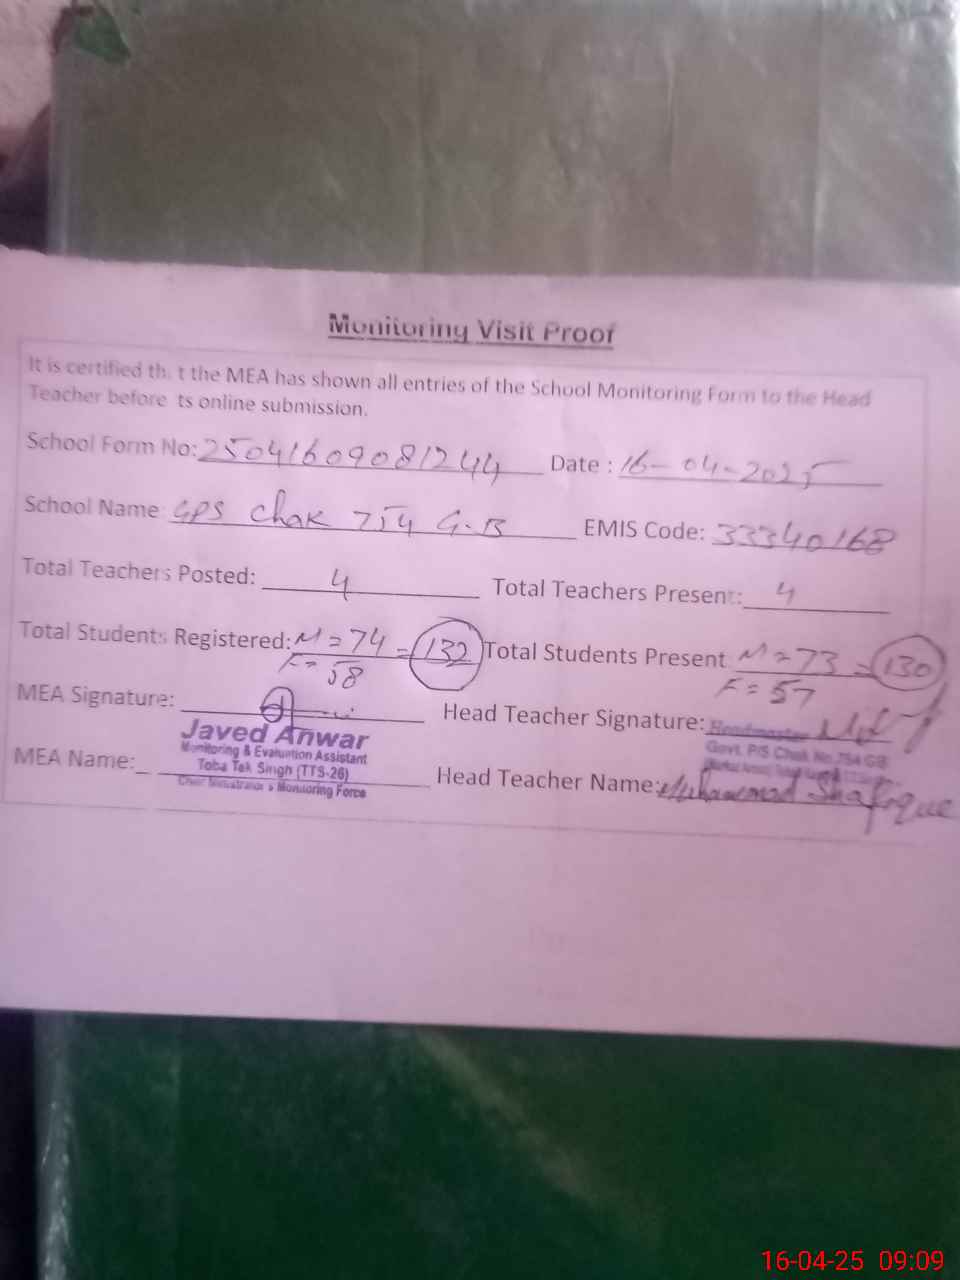 Monitoring Visit Proof
It is certified that the MEA has shown all entries of the School Monitoring Form to the Head
Teacher before its online submission.
School Form No: 25041609081244 Date : 16-04-2025
School Name: GPS Chak 754 G.B EMIS Code: 33340168
Total Teachers Posted: 4 Total Teachers Present: 4
Total Students Registered: M = 74 = 132 Total Students Present M = 73 = 130
F = 58 F = 57
MEA Signature: Head Teacher Signature: Headmaster
Javed Anwar
Monitoring & Evaluation Assistant Govt. P/S Chak No.754 GB
Toba Tek Singh (TTS-26)
MEA Name: Head Teacher Name: Muhammad Shafique
Monitoring Force
16-04-25 09:09